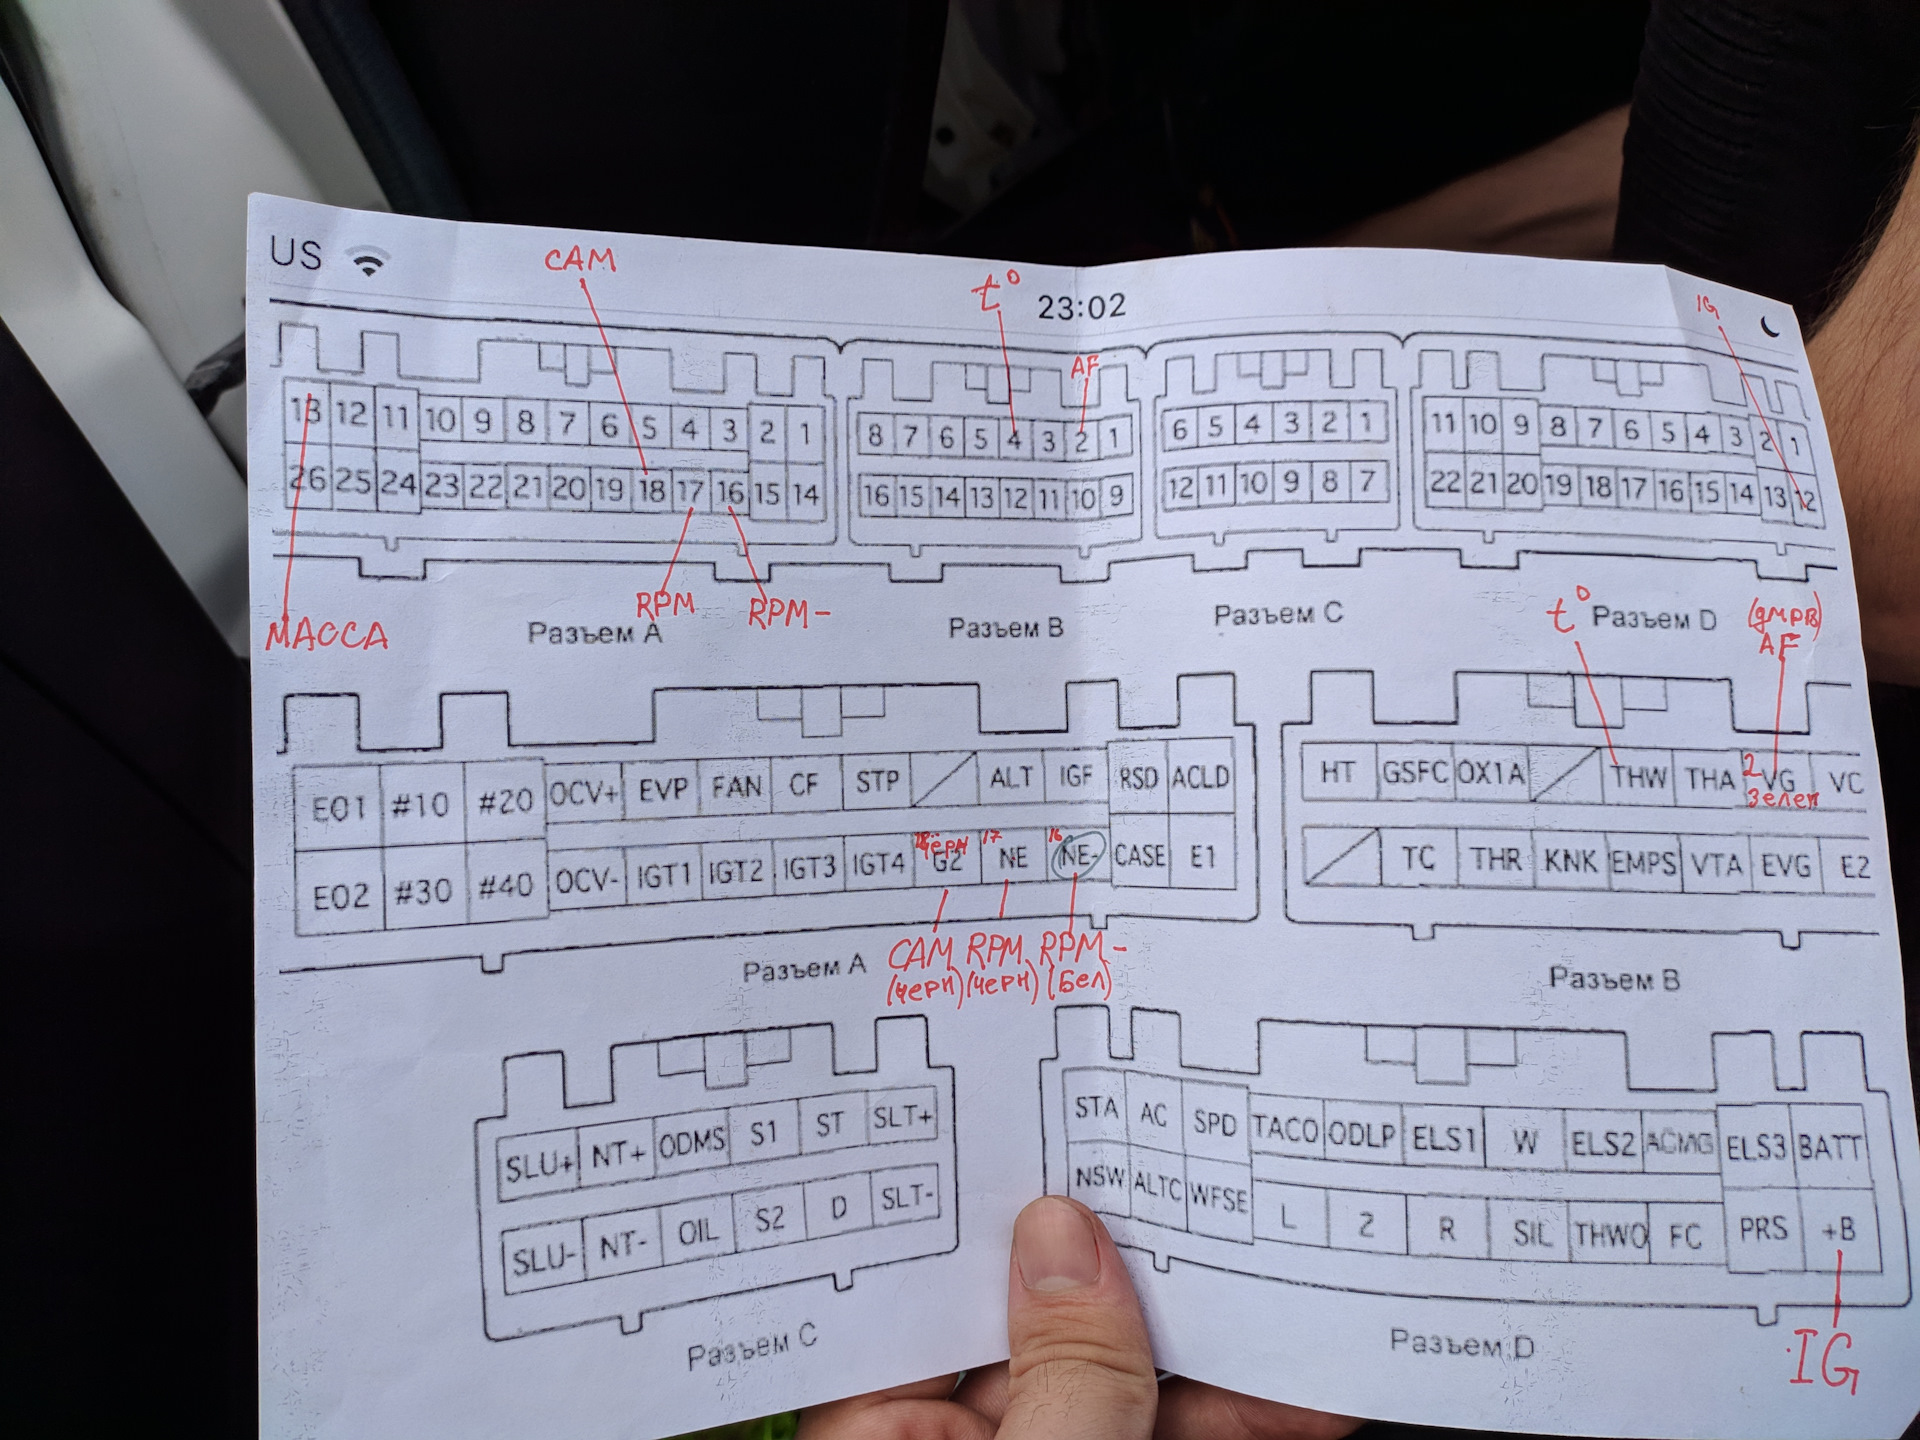 US
CAM
t°
23:02
IG
AF
13 12 11 10 9 8 7 6 5 4 3 2 1
26 25 24 23 22 21 20 19 18 17 16 15 14
8 7 6 5 4 3 2 1
16 15 14 13 12 11 10 9
6 5 4 3 2 1
12 11 10 9 8 7
11 10 9 8 7 6 5 4 3 2 1
22 21 20 19 18 17 16 15 14 13 12
МАССА
RPM
RPM-
Разъем A
Разъем B
Разъем C
t°
Разъем D
(дмрв)
AF
E01 #10 #20 OCV+ EVP FAN CF STP ALT IGF RSD ACLD
18 черн 17 16
E02 #30 #40 OCV- IGT1 IGT2 IGT3 IGT4 G2 NE NE- CASE E1
HT GSFC OX1A THW THA 2 VG VC
зелен
TC THR KNK EMPS VTA EVG E2
Разъем A
CAM RPM RPM-
(черн) (черн) (бел)
Разъем B
SLU+ NT+ ODMS S1 ST SLT+
SLU- NT- OIL S2 D SLT-
Разъем C
STA AC SPD TACO ODLP ELS1 W ELS2 ACMG ELS3 BATT
NSW ALTC WFSE L 2 R SIL THWO FC PRS +B
Разъем D
IG